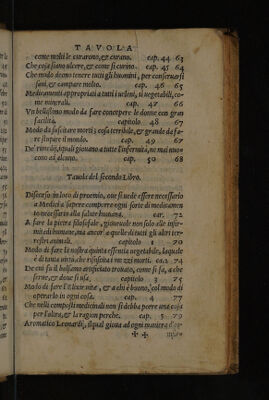 TAVOLA
come molti le curarono, & curano. cap. 44 63
Che cosa siano ulcere, & come si curino. cap. 45 64
Che modo deono tenere tutti gli huomini, per conseruarsi
sani, & campare molto. cap. 46 65
Medicamenti appropriati a tutti i ulceri, si uegetabili, co-
me minerali. cap. 47 66
Vn bellissimo modo da fare concepere le donne con gran
facilità. capitolo 48 67
Modo da suscitare morti; cosa terribile, & grande da fa-
re stupire il mondo. cap. 49 67
De rimedij, i quali giouano a tutte l'infermità, ne mai nuo-
cono ad alcuno. cap. 50 68
Tauola del secondo Libro.
Discorso in loco di proemio, oue si uede essere necessario
a Medici a sapere comporre ogni sorte di medicamen
to necessario alla salute humana. car. 72
A fare la pietra filosofale, gioueuole non solo alle infir-
mità humane, ma ancor' a quelle di tutti gli altri ter-
restri animali. capitolo 1 70
Modo di fare la nostra quinta essentia uegetabile, laquale
è di tanta uirtù, che risuscita i mezzi morti. ca. 2 74
De cui su il balsamo artificiato trouato, come si fa, a che
serue, & doue si usa. capitolo 3 75
Modo di fare l'Elixir uitæ, & a chi è buono, & col modo di
operarlo in ogni cosa. cap. 4 77
Che nelli compositi medicinali non si debba porre una cosa
per l'altra, & la ragion perche. cap. 5 79
Aromatico Leonardi, il qual gioua ad ogni maniera d'in-